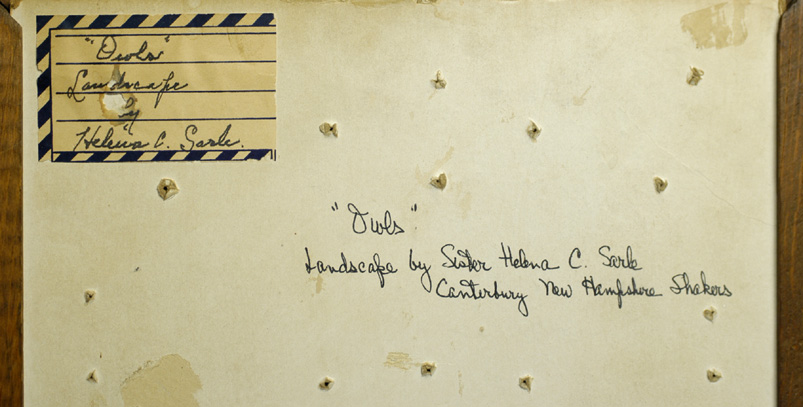 "Owls"
Landscape
by
Helena C. Sarle.
"Owls"
Landscape by Sister Helena C. Sarle
Canterbury New Hampshire Shakers